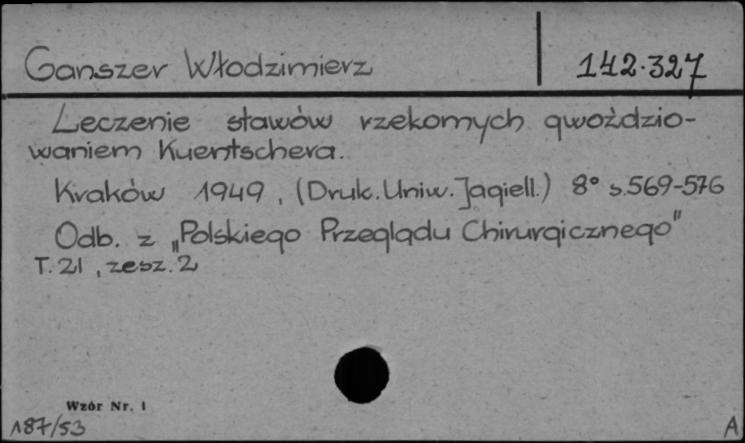 Ganszer Włodzimierz 142.327
Leczenie stawów rzekomych gwoździo-
waniem Kuentschera.
Kraków 1949, (Druk. Uniw. Jagiell.) 8° s.569-576
Odb. z „Polskiego Przeglądu Chirurgicznego"
T. 21, zesz. 2
Wzór Nr. 1
187/53 A